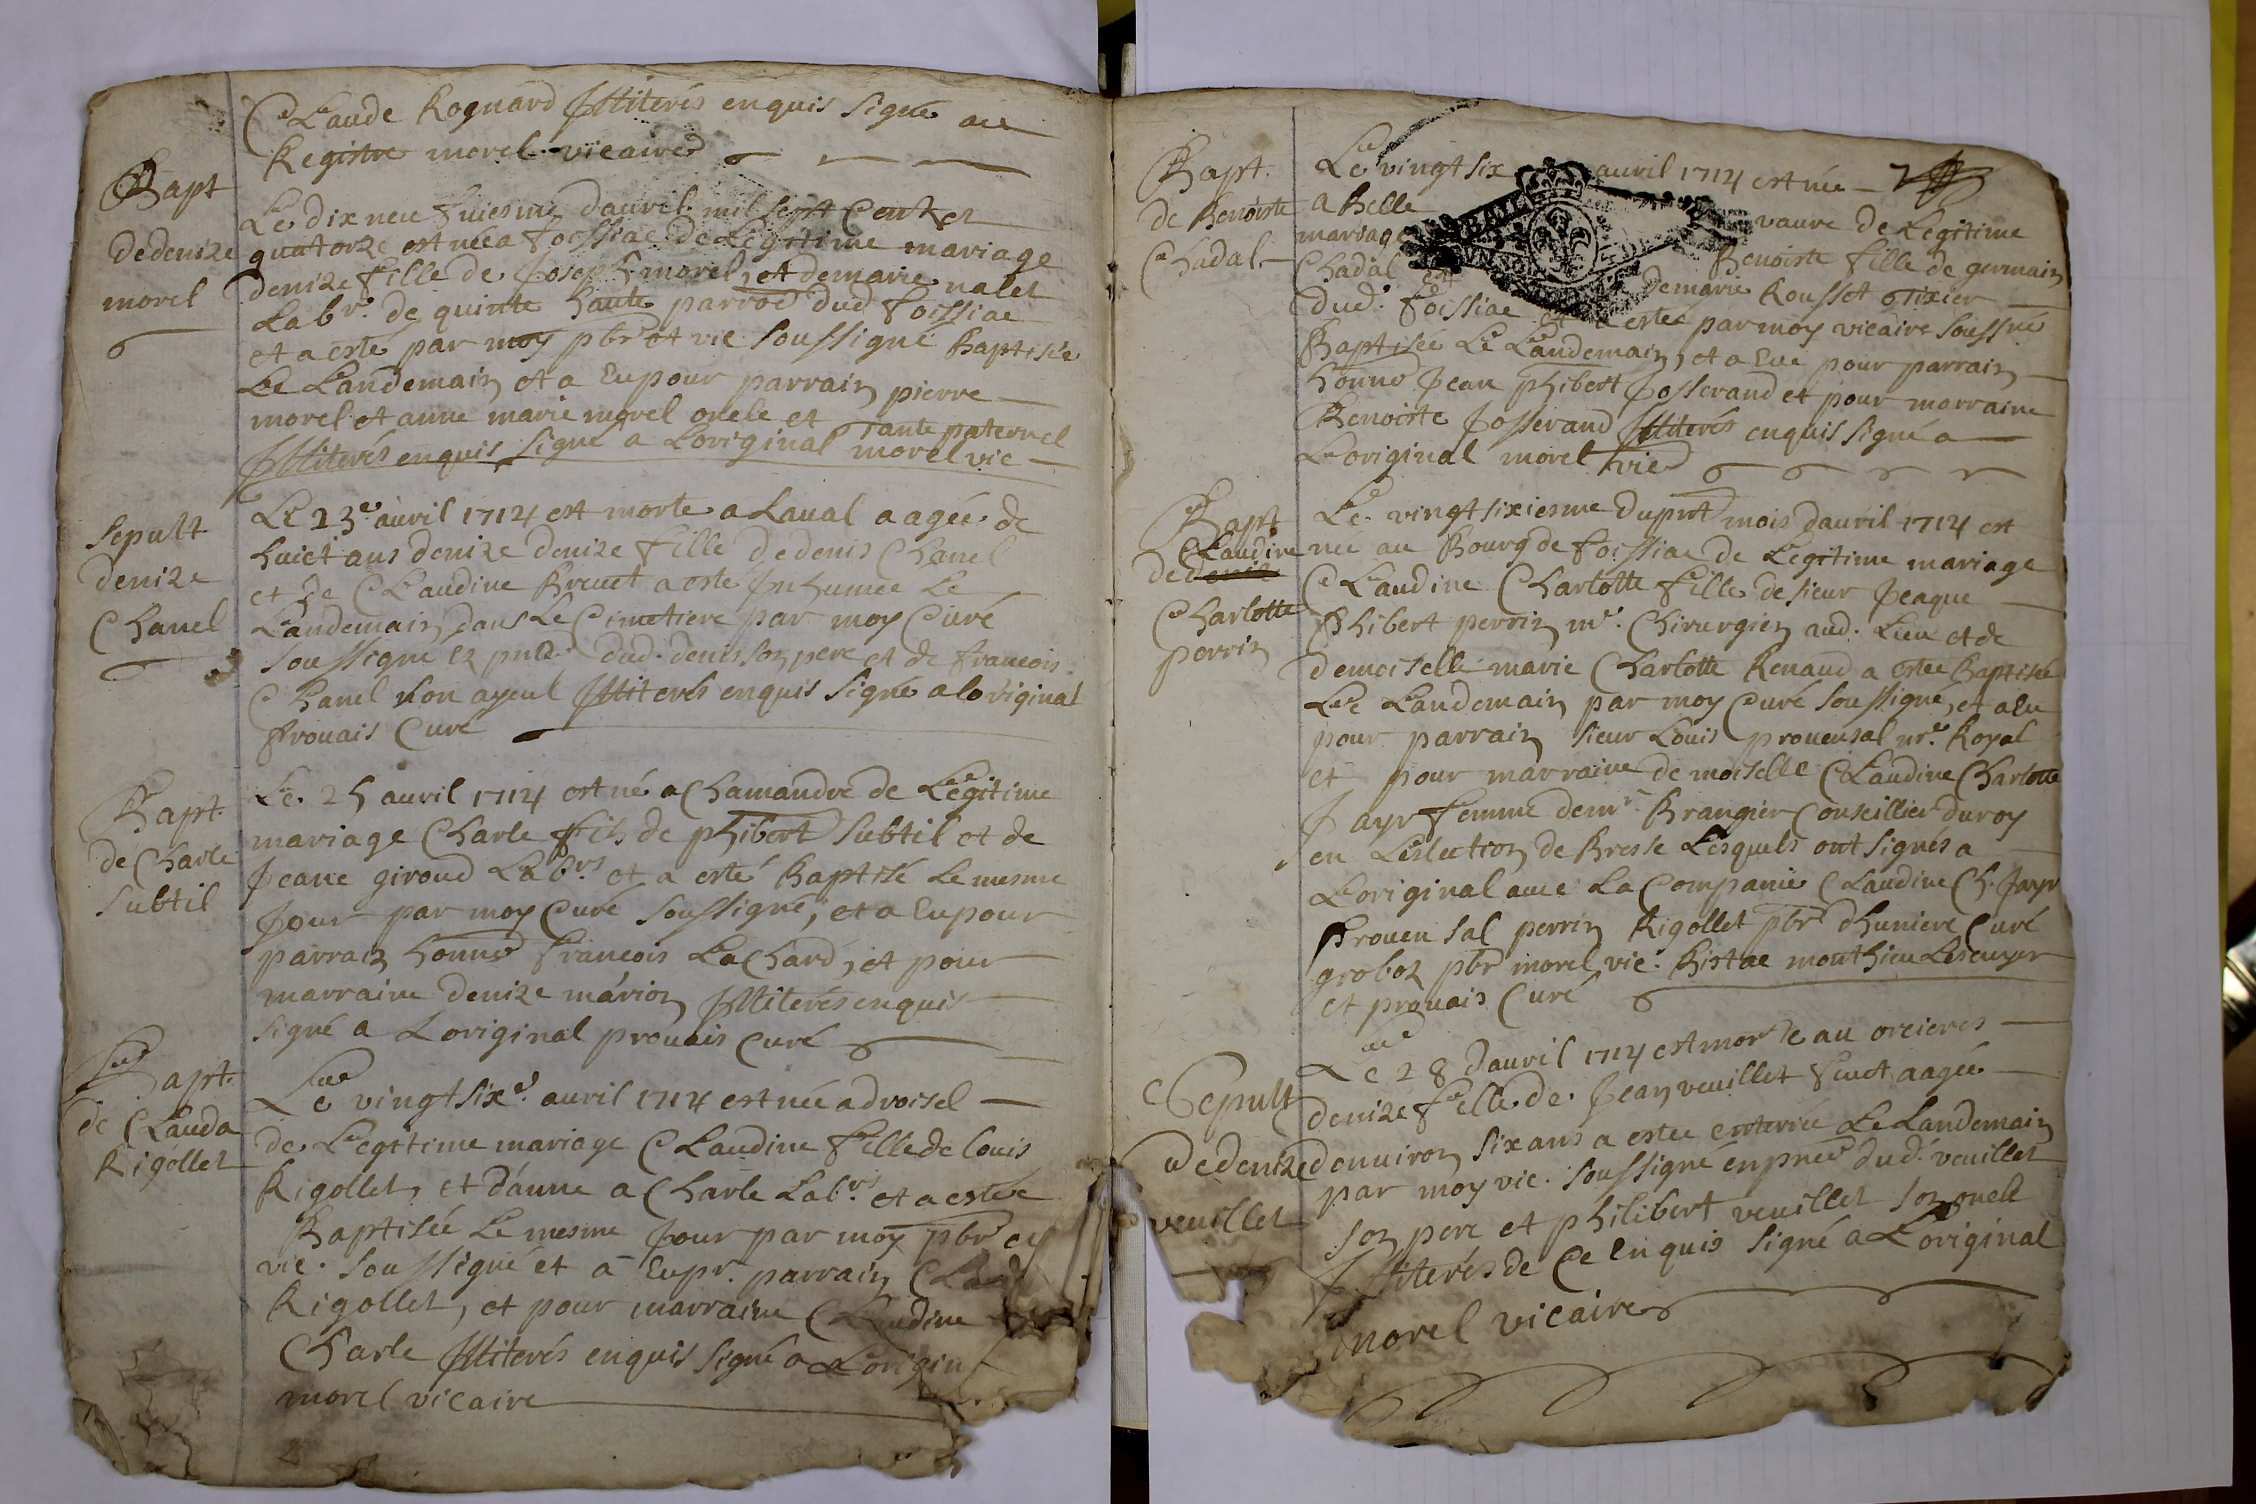 Claude Rognard Illiterés enquis signé au
Registre morel vicaire
Bapt
de denize
morel
Le dix neufuiesme dauril mil sept Cent et
quatorze est née a foissiac de Legitime mariage
denize fille de Joseph morel, et de marie nalet
Labr. de quinte haute parroe dud foissiac
et a esté par moy pbr et vic soussigné Baptisée
Le Landemain et a Eu pour parrain pierre
morel et anne marie morel oncle et Tante paternel
Illiterés enquis signé a Loriginal morel vic
Sepult
denize
Chanel
Le 23e. auril 1714 est morte a Laual aagée de
huict ans denize denize fille de denis Chanel
et de Claudine Breuet a esté Inhumée Le
Landemain dans Le Cimetiere par moy Curé
soussigné en pnce. dud. denis son pere et de francois
Chanel son ayeul Illiterés enquis signé a loriginal
Prouais Curé
Bapt.
de Charle
Subtil
Le 25 auril 1714 est né a Chamandré de Legitime
mariage Charle fils de phibert Subtil et de
Jeane giroud Labrs. et a esté Baptisé Le mesme
Jour par moy Curé soussigné, et a Eu pour
parrain honne francois LaChard, et pour
marraine denize marion Illiterés enquis
signé a Loriginal prouais Curé
Bapt.
de Clauda
Rigollet
Le vingt sixe. auril 1714 est née a droisel
de Legitime mariage Claudine fille de louis
Rigollet, et d'anne a Charle Labrs. et a estée
Baptisée Le mesme Jour par moy pbr et
vic. soussigné et a Eu pr. parrain Claud
Rigollet, et pour marraine Claudine
Charle Illiterés enquis signé a Lorigin
morel vicaire
Bapt.
de Benoiste
Chadal
Le vingt six auril 1714 est née
a Belle vaure de Legitime
mariage Benoiste fille de germain
Chadal et de marie Rousset Tixier
dud. foissiac et a estée par moy vicaire soussné
Baptisée Le Landemain, et a Eue pour parrain
honne Jean phibert Josserand et pour marraine
Benoiste Josserand Illiterés enquis signé a
Loriginal morel vic
Bapt
Claudine
de denize
Charlotte
perrin
Le vingt sixiesme du pnt mois dauril 1714 est
née au Bourg de foissiac de Legitime mariage
Claudine Charlotte fille de sieur Jeaque
Phibert perrin mr. Chirurgien aud. Lieu et de
demoiselle marie Charlotte Renaud a estée Baptisée
Le Landemain par moy Curé soussigné, et a Eu
pour parrain sieur Louis prouensal nre. Royal
et pour marraine demoiselle Claudine Charlotte
Jayr femme de mr. Brangier Conseillier du roy
en Leslection de Bresse Lesquels ont signés a
Loriginal auec La Companie Claudine Ch. Jayr
Prouensal perrin Rigollet pbr dhuniere Curé
groboz pbr morel vic. Bistac monthieu Lescuyer
et prouais Curé
Sepult
de denize
veuillet
Le 28 dauril 1714 est morte au orcieres
denize fille de Jean veuillet aagée
denuiron six ans a estée enterrée Le Landemain
par moy vic. soussigné en pnce dud. veuillet
son pere et philibert veuillet son oncle
Illiterés de Ce Enquis signé a Loriginal
morel vicaire